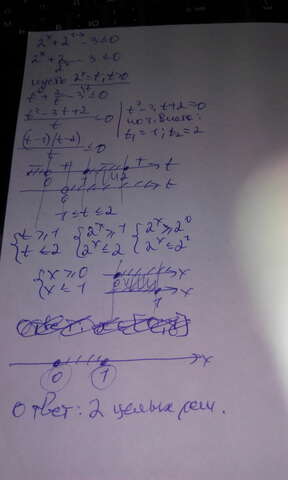 2ˣ + 2¹⁻ˣ - 3 ≤ 0
2ˣ + 2/2ˣ - 3 ≤ 0
пусть 2ˣ = t, t > 0
t + 2/t - 3 ≤ 0
(t² - 3t + 2)/t ≤ 0
t² - 3t + 2 = 0
по т. Виета:
t₁ = 1; t₂ = 2
≤ 0
0 1 2 t
0 t
1 ≤ t ≤ 2
{ t ≥ 1 { 2ˣ ≥ 1 { 2ˣ ≥ 2⁰
{ t ≤ 2 { 2ˣ ≤ 2 { 2ˣ ≤ 2¹
{ x ≥ 0
{ x ≤ 1
0 x
1 x
0 1 x
Ответ: 2 целых реш.